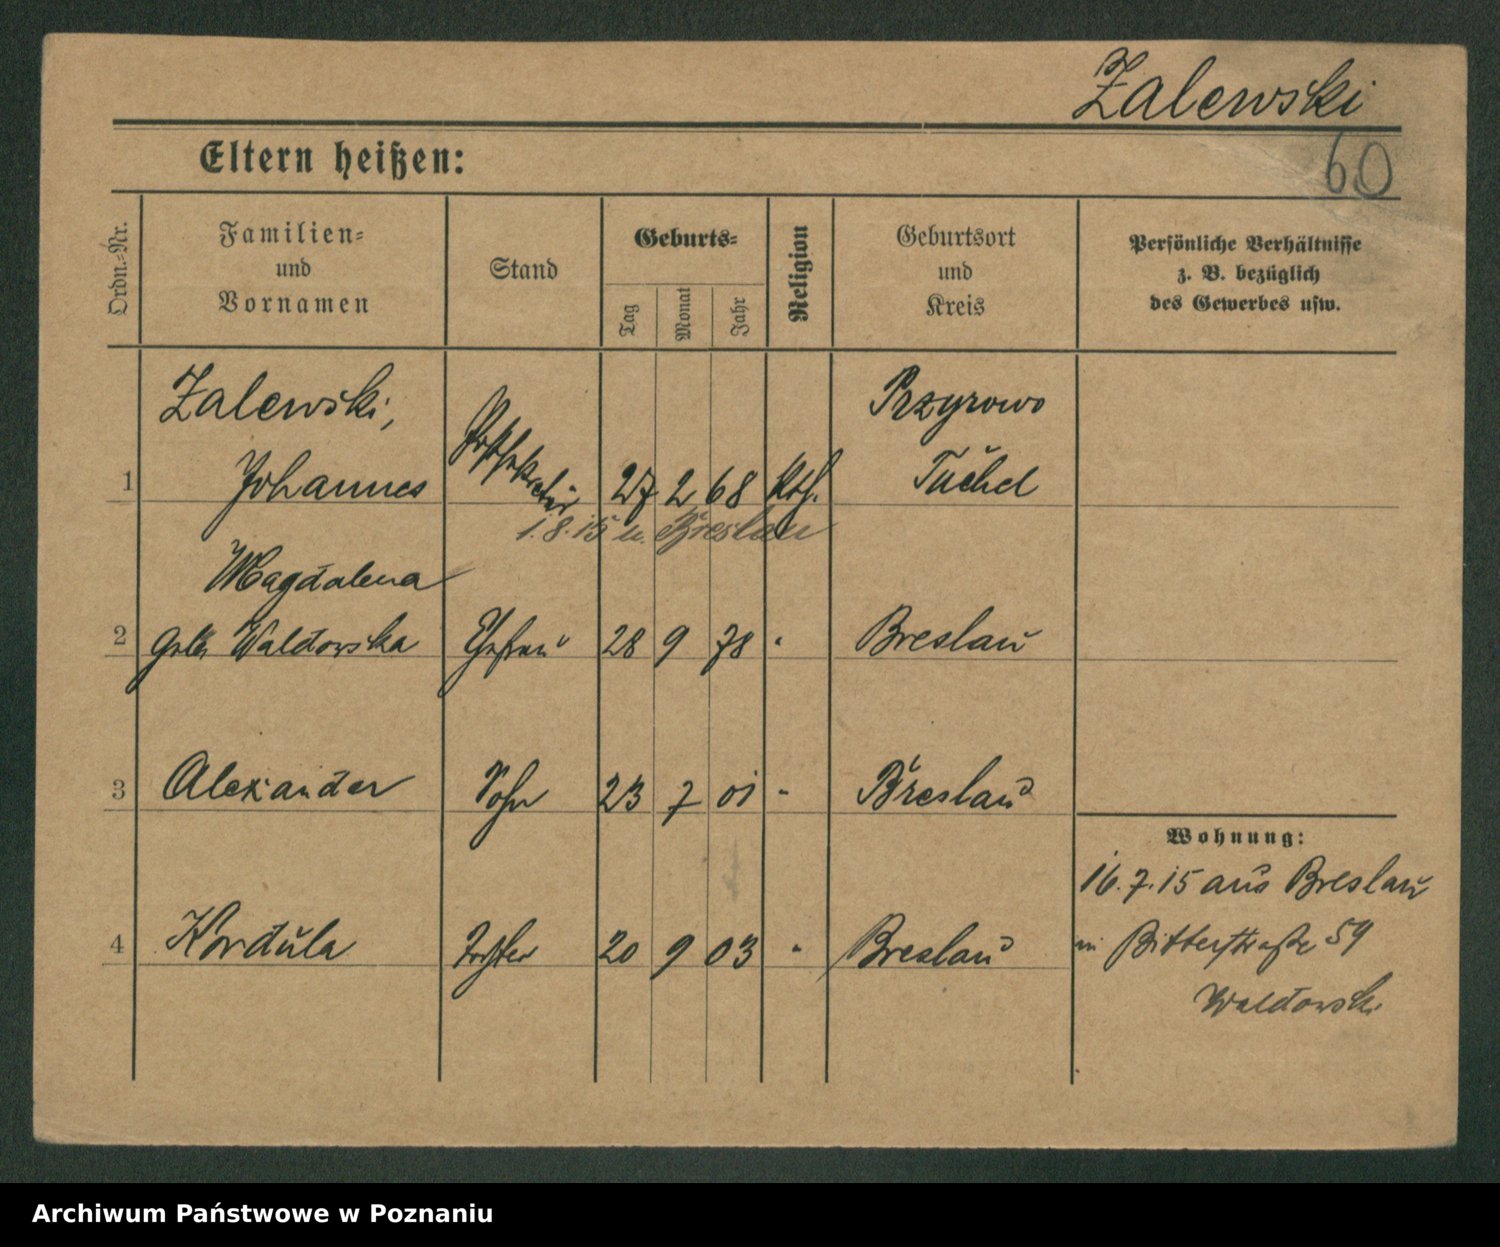 Zalewski
60
Eltern heißen:
Ordn.=Nr.
Familien=
und
Vornamen
Stand
Geburts=
Tag
Monat
Jahr
Religion
Geburtsort
und
Kreis
Persönliche Verhältnisse
z. B. bezüglich
des Gewerbes usw.
1
Zalewski,
Johannes
Postsekretär
27 2 68
Kth.
Przyrowo
Tuchel
1.8.15 n. Breslau
2
Magdalena
geb. Waldowska
Ehefrau
28 9 78 "
Breslau
3
Alexander
Sohn
23 7 01 "
Breslau
4
Kordula
Tochter
20 9 03 "
Breslau
Wohnung:
16.7.15 aus Breslau
in Bitterstraße 59
Waldowski
Archiwum Państwowe w Poznaniu